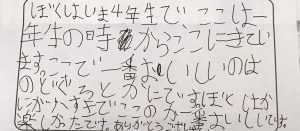 ぼくはいま4年生で ここは一
年生の時からここにきてい
ます。ここで一番おいしいのは
のどぐろとかにです。ぼくはか
にがで ここのが一番おいしいです。
楽しかったです。ありがとうございま